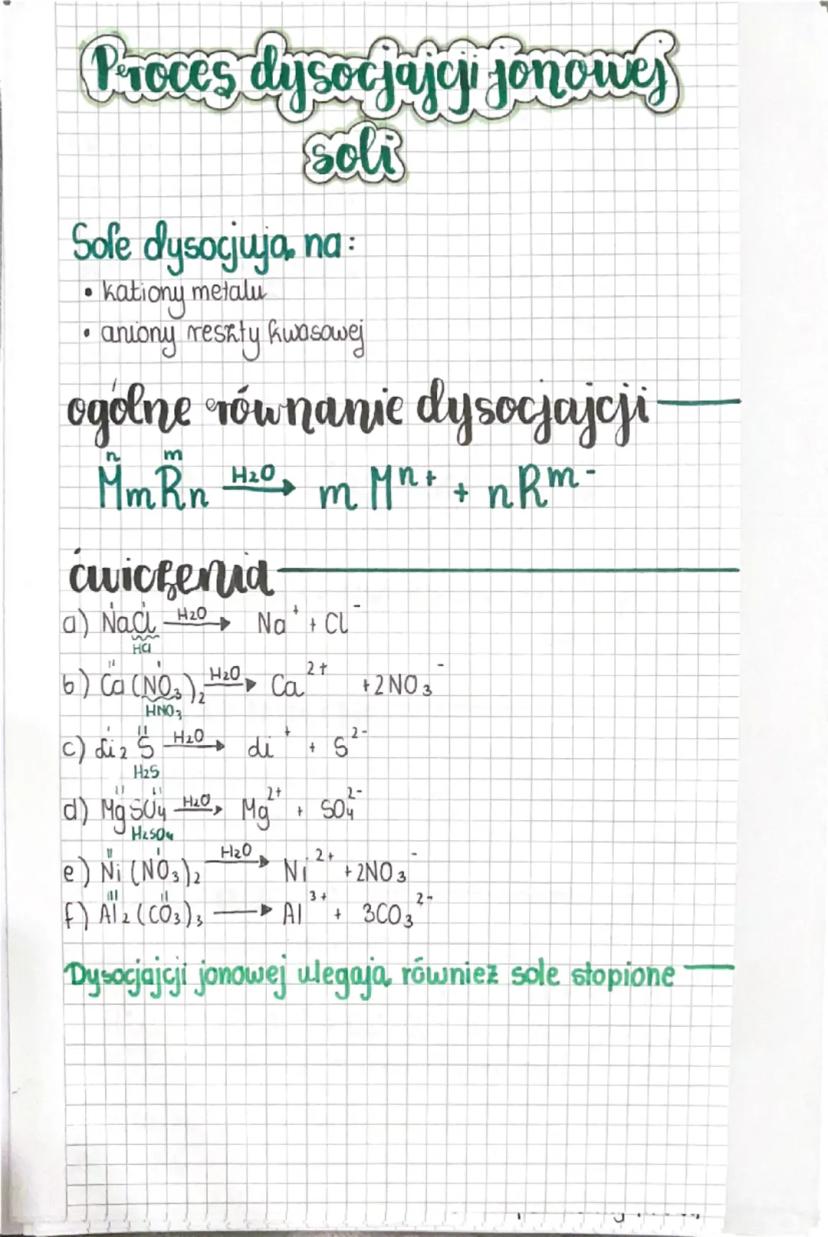 Proces dysocjajcji jonowej
soli
Sole dysocjują na:
• kationy metalu
• aniony reszty kwasowej
ogólne równanie dysocjajcji
n m
MmRn H₂O→ m Mⁿ⁺ + nRᵐ⁻
ćwiczenia
a) NaCl H₂O→ Na⁺ + Cl⁻
HCl
b) Ca(NO₃)₂ H₂O→ Ca²⁺ + 2NO₃⁻
HNO₃
c) Li₂S H₂O→ Li⁺ + S²⁻
H₂S
d) MgSO₄ H₂O→ Mg²⁺ + SO₄²⁻
H₂SO₄
e) Ni(NO₃)₂ H₂O→ Ni²⁺ + 2NO₃⁻
f) Al₂(CO₃)₃ → Al³⁺ + 3CO₃²⁻
Dysocjajcji jonowej ulegają również sole stopione